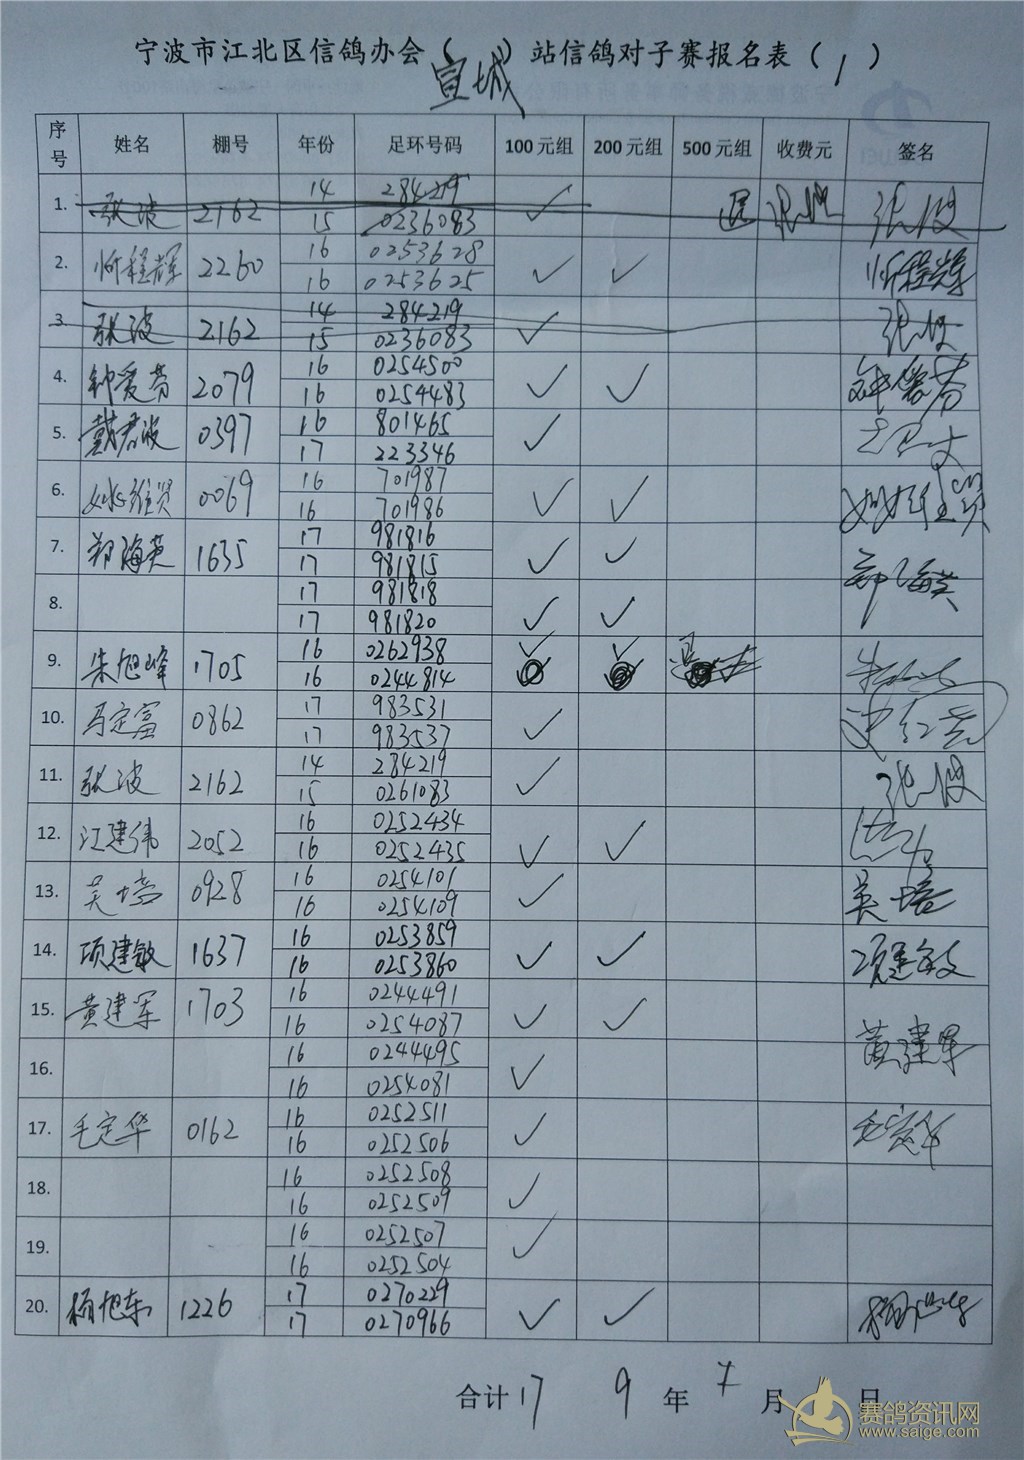 宁波市江北区信鸽办会（宣城）站信鸽对子赛报名表（1）
序号 姓名 棚号 年份 足环号码 100元组 200元组 500元组 收费元 签名
1. 张波 2162 14 284219 ✓ 退 张波
15 0236083
2. 忻程辉 2260 16 0253628 ✓ ✓ 忻程辉
16 0253625
3. 张波 2162 14 284219 ✓ 张波
15 0236083
4. 钟爱芬 2079 16 0254500 ✓ ✓ 钟爱芬
16 0254483
5. 戴君波 0397 16 801465 ✓
17 223346
6. 姚维贤 0069 16 701987 ✓ ✓ 姚维贤
16 701986
7. 郑海英 1635 17 981816 ✓ ✓ 郑海英
17 981815
8. 17 981818 ✓ ✓
17 981820
9. 朱旭峰 1705 16 0262938 ✓ ✓
16 0244814
10. 马定富 0862 17 983531 ✓
17 983537
11. 张波 2162 14 284219 ✓ 张波
15 0261083
12. 江建伟 2052 16 0252434 ✓ ✓
16 0252435
13. 吴培 0928 16 0254101 ✓ 吴培
16 0254109
14. 项建敏 1637 16 0253859 ✓ ✓ 项建敏
16 0253860
15. 黄建军 1703 16 0244491 ✓ ✓ 黄建军
16 0254087
16. 16 0244495 ✓
16 0254081
17. 毛定华 0162 16 0252511 ✓ 毛定华
16 0252506
18. 16 0252508 ✓
16 0252509
19. 16 0252507 ✓
16 0252504
20. 杨旭东 1226 17 0270229 ✓ ✓
17 0270966
合计17 9 年 7 月 日
赛鸽资讯网
www.saige.com